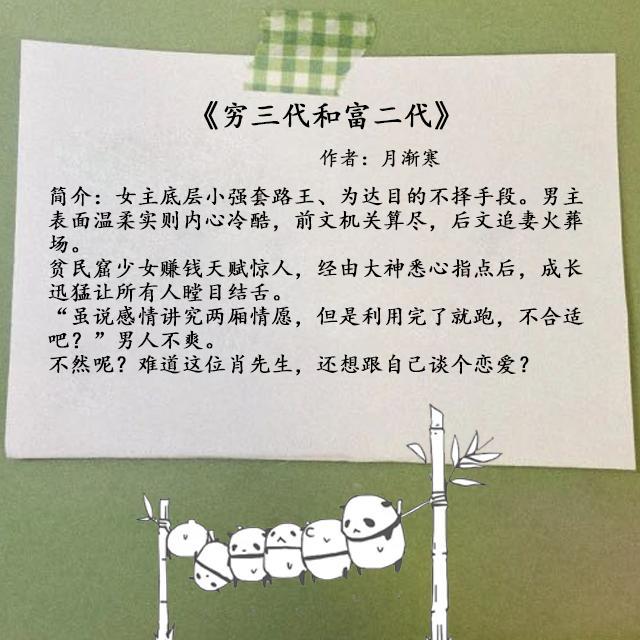 《穷三代和富二代》
作者：月渐寒
简介：女主底层小强套路王、为达目的不择手段。男主
表面温柔实则内心冷酷，前文机关算尽，后文追妻火葬
场。
贫民窟少女赚钱天赋惊人，经由大神悉心指点后，成长
迅猛让所有人瞠目结舌。
“虽说感情讲究两厢情愿，但是利用完了就跑，不合适
吧？”男人不爽。
不然呢？难道这位肖先生，还想跟自己谈个恋爱？